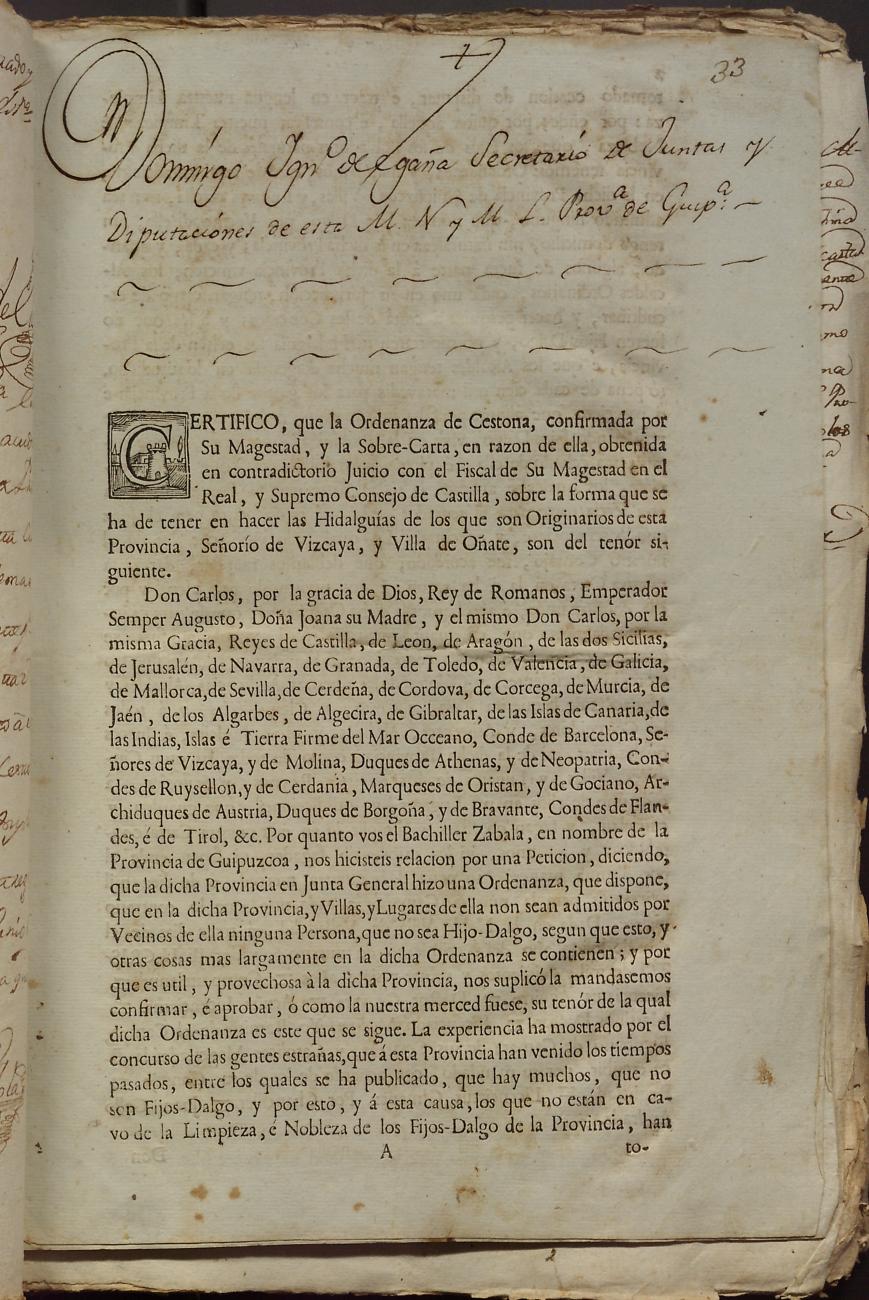 33
Domingo Ign.º de Egaña Secretario de Juntas y
Diputaciones de esta M. N y M. L. Prov.ª de Guip.ª
CERTIFICO, que la Ordenanza de Cestona, confirmada por
Su Magestad, y la Sobre-Carta, en razon de ella, obtenida
en contradictorio Juicio con el Fiscal de Su Magestad en el
Real, y Supremo Consejo de Castilla, sobre la forma que se
ha de tener en hacer las Hidalguías de los que son Originarios de esta
Provincia, Señorío de Vizcaya, y Villa de Oñate, son del tenór si-
guiente.
Don Carlos, por la gracia de Dios, Rey de Romanos, Emperador
Semper Augusto, Doña Joana su Madre, y el mismo Don Carlos, por la
misma Gracia, Reyes de Castilla, de Leon, de Aragón, de las dos Sicilias,
de Jerusalén, de Navarra, de Granada, de Toledo, de Valencia, de Galicia,
de Mallorca, de Sevilla, de Cerdeña, de Cordova, de Corcega, de Murcia, de
Jaén, de los Algarbes, de Algecira, de Gibraltar, de las Islas de Canaria, de
las Indias, Islas é Tierra Firme del Mar Occeano, Conde de Barcelona, Se-
ñores de Vizcaya, y de Molina, Duques de Athenas, y de Neopatria, Con-
des de Ruysellon, y de Cerdania, Marqueses de Oristan, y de Gociano, Ar-
chiduques de Austria, Duques de Borgoña, y de Bravante, Condes de Flan-
des, é de Tirol, &c. Por quanto vos el Bachiller Zabala, en nombre de la
Provincia de Guipuzcoa, nos hicisteis relacion por una Peticion, diciendo,
que la dicha Provincia en Junta General hizo una Ordenanza, que dispone,
que en la dicha Provincia, y Villas, y Lugares de ella non sean admitidos por
Vecinos de ella ninguna Persona, que no sea Hijo-Dalgo, segun que esto, y
otras cosas mas largamente en la dicha Ordenanza se contienen; y por
que es util, y provechosa à la dicha Provincia, nos suplicó la mandasemos
confirmar, é aprobar, ó como la nuestra merced fuese, su tenór de la qual
dicha Ordenanza es este que se sigue. La experiencia ha mostrado por el
concurso de las gentes estrañas, que á esta Provincia han venido los tiempos
pasados, entre los quales se ha publicado, que hay muchos, que no
son Fijos-Dalgo, y por esto, y á esta causa, los que no están en ca-
vo de la Limpieza, é Nobleza de los Fijos-Dalgo de la Provincia, han
A to-
2